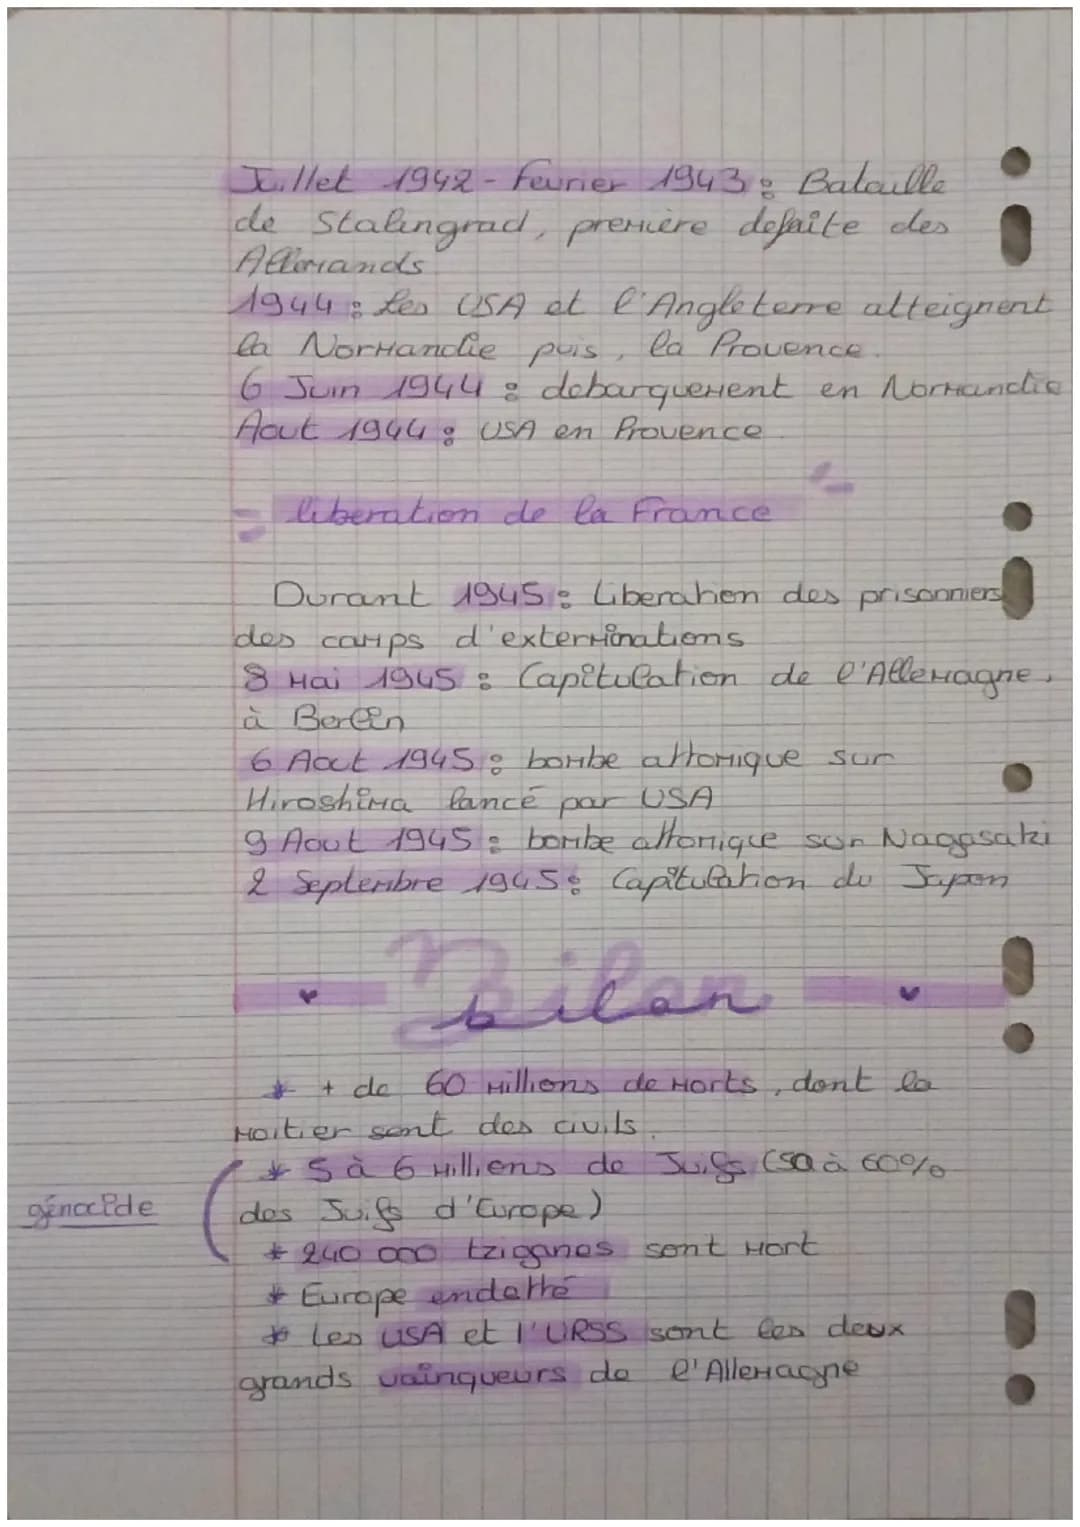 Juillet 1942 - Fevrier 1943 : Bataille
de Stalingrad, première defaite des
Allemands
1944 : Les USA et l'Angleterre atteignent
la Normandie puis, la Provence.
6 Juin 1944 : debarquement en Normandie
Aout 1944 : USA en Provence
= liberation de la France =
Durant 1945 : Liberation des prisonniers
des camps d'exterminations
8 Mai 1945 : Capitulation de l'Allemagne,
à Berlin
6 Aout 1945 : bombe attomique sur
Hiroshima lancé par USA
9 Aout 1945 : bombe attomique sur Nagasaki
2 Septembre 1945 : Capitulation du Japon
bilan
* + de 60 Millions de Morts, dont la
Moitier sont des civils.
* 5 à 6 Millions de Juifs (50 à 60%
génocide
des Juifs d'Europe)
* 240 000 tziganes sont Mort
* Europe endetté
* Les USA et l'URSS sont les deux
grands vainqueurs de l'Allemagne